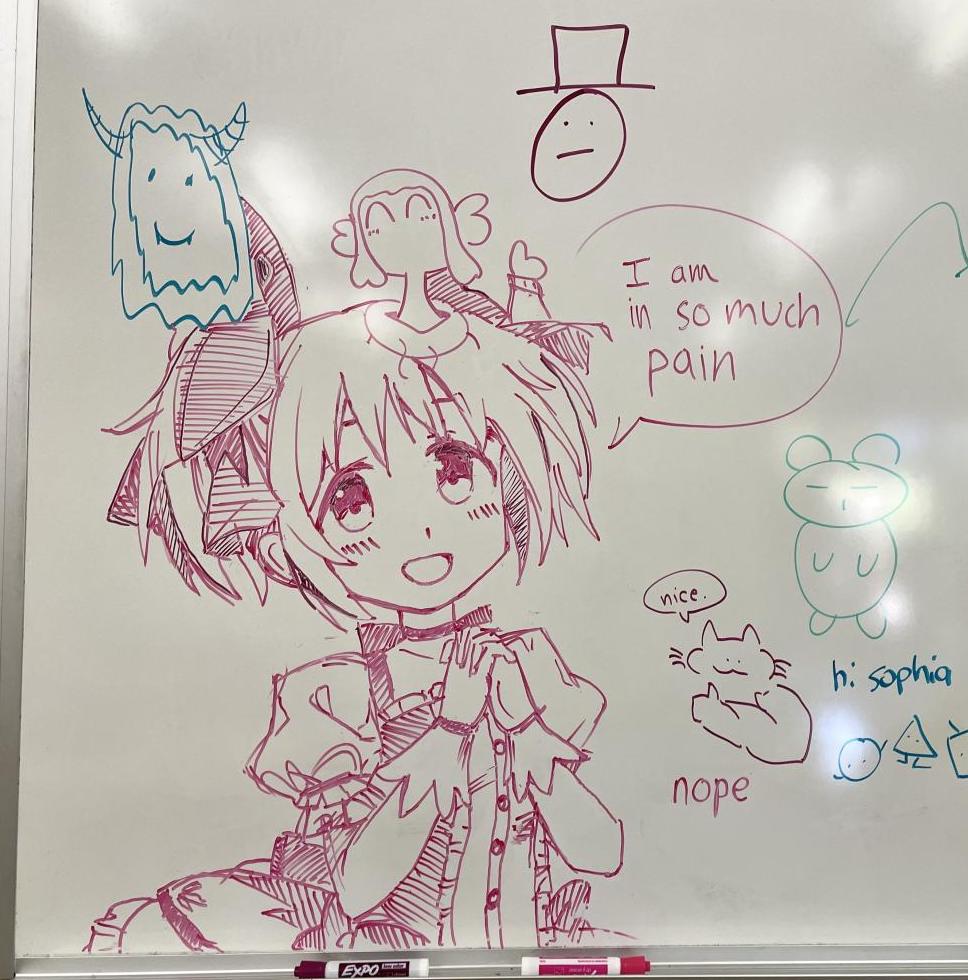 I am
in so much
pain
nice.
hi sophia
nope
EXPO